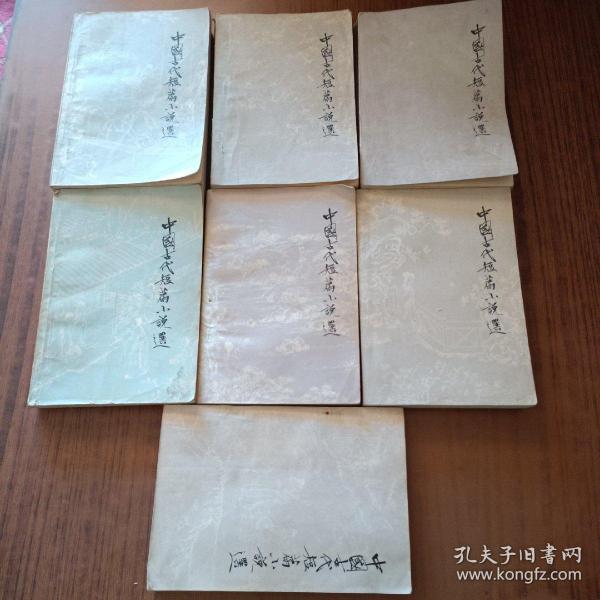 中國古代短篇小說選
中國古代短篇小說選
中國古代短篇小說選
中國古代短篇小說選
中國古代短篇小說選
中國古代短篇小說選
中國古代短篇小說選
孔夫子旧书网
www.kongfz.com